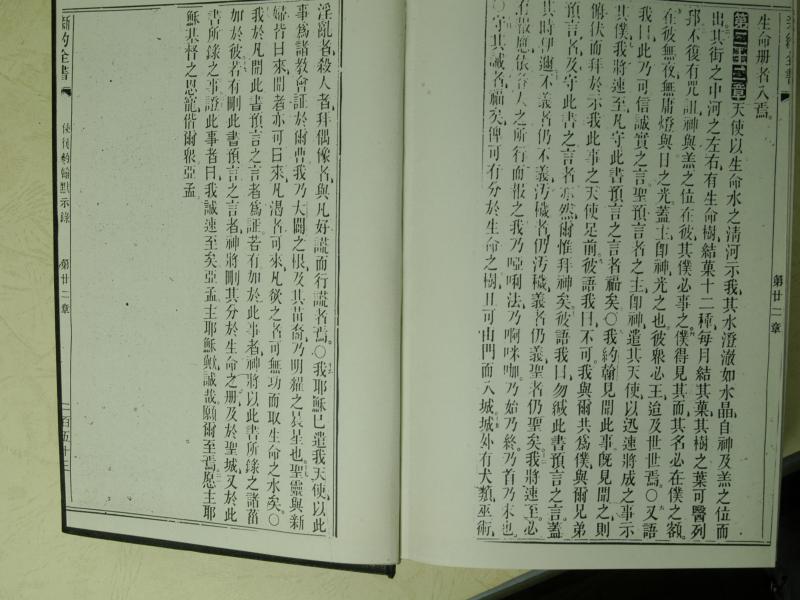 生命册者入焉。
第二十二章天使以生命水之淸河示我其水澄澈如水晶自神及羔之位而
出其街之中河之左右有生命樹結菓十二種每月結其菓其樹之葉可醫列
邦不復有咒詛神與羔之位在彼其僕必事之僕得見其面其名必在僕之額
在彼無夜無庸燈與日之光蓋主卽神光之也彼衆必王迨及世世焉〇又語
我曰此乃可信誠實之言聖預言者之主卽神遣其天使以迅速將成之事示
其僕我將速至凡守此書預言之言者福矣〇我約翰見聞此事旣見聞之則
俯伏而拜於示我此事之天使足前彼語我曰不可我與爾共爲僕與爾兄弟
預言者及守此書之言者亦然爾惟拜神矣彼語我曰勿緘此書預言之言蓋
其時伊邇不義者仍不義汚穢者仍汚穢義者仍義聖者仍聖矣我將速至必
有報應依各人之所行而報之我乃啞唎法乃啊咪咖乃始乃終乃首乃末也
〇守其誡者福矣俾可有分於生命之樹且可由門而入城城外有犬類巫術
淫亂者殺人者拜偶像者與凡好謊而行謊者焉〇我耶穌已遣我天使以此
事爲諸教會証於爾曹我乃大闢之根及其苗裔乃明耀之晨星也聖靈與新
婦皆曰來聞者亦可曰來凡渴者可來凡欲之者可無功而取生命之水矣〇
我於凡聞此書預言之言者爲証若有加於此事者神將以此書所錄之諸菑
加於彼若有刪此書預言之言者神將刪其分於生命之册及於聖城又於此
書所錄之事證此事者曰我誠速至矣亞孟主耶穌歟誠哉願爾至焉愿主耶
穌基督之恩寵偕爾衆亞孟
新約全書
使徒約翰默示錄
第廿二章
一百五十三
新約全書
第廿二章